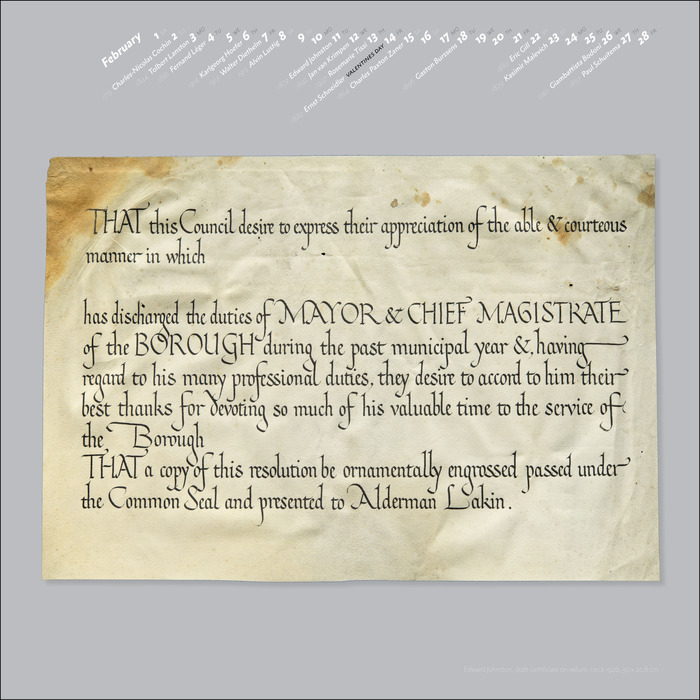 February 1 2 3 4 5 6 7 8 9 10 11 12 13 14 15 16 17 18 19 20 21 22 23 24 25 26 27 28
Charles-Nicolas Cochin
Tolbert Lanston
Fernand Léger
Karlgeorg Hoefer
Walter Diethelm
Alvin Lustig
Edward Johnston
Jan van Krimpen
Rosemarie Tissi
Ernst Schneidler VALENTINES DAY
Charles Paxton Zaner
Gaston Burssens
Eric Gill
Kasimir Malevich
Giambattista Bodoni
Paul Schuitema
THAT this Council desire to express their appreciation of the able & courteous
manner in which
has discharged the duties of MAYOR & CHIEF MAGISTRATE
of the BOROUGH during the past municipal year &, having
regard to his many professional duties, they desire to accord to him their
best thanks for devoting so much of his valuable time to the service of
the Borough
THAT a copy of this resolution be ornamentally engrossed passed under
the Common Seal and presented to Alderman Lakin.